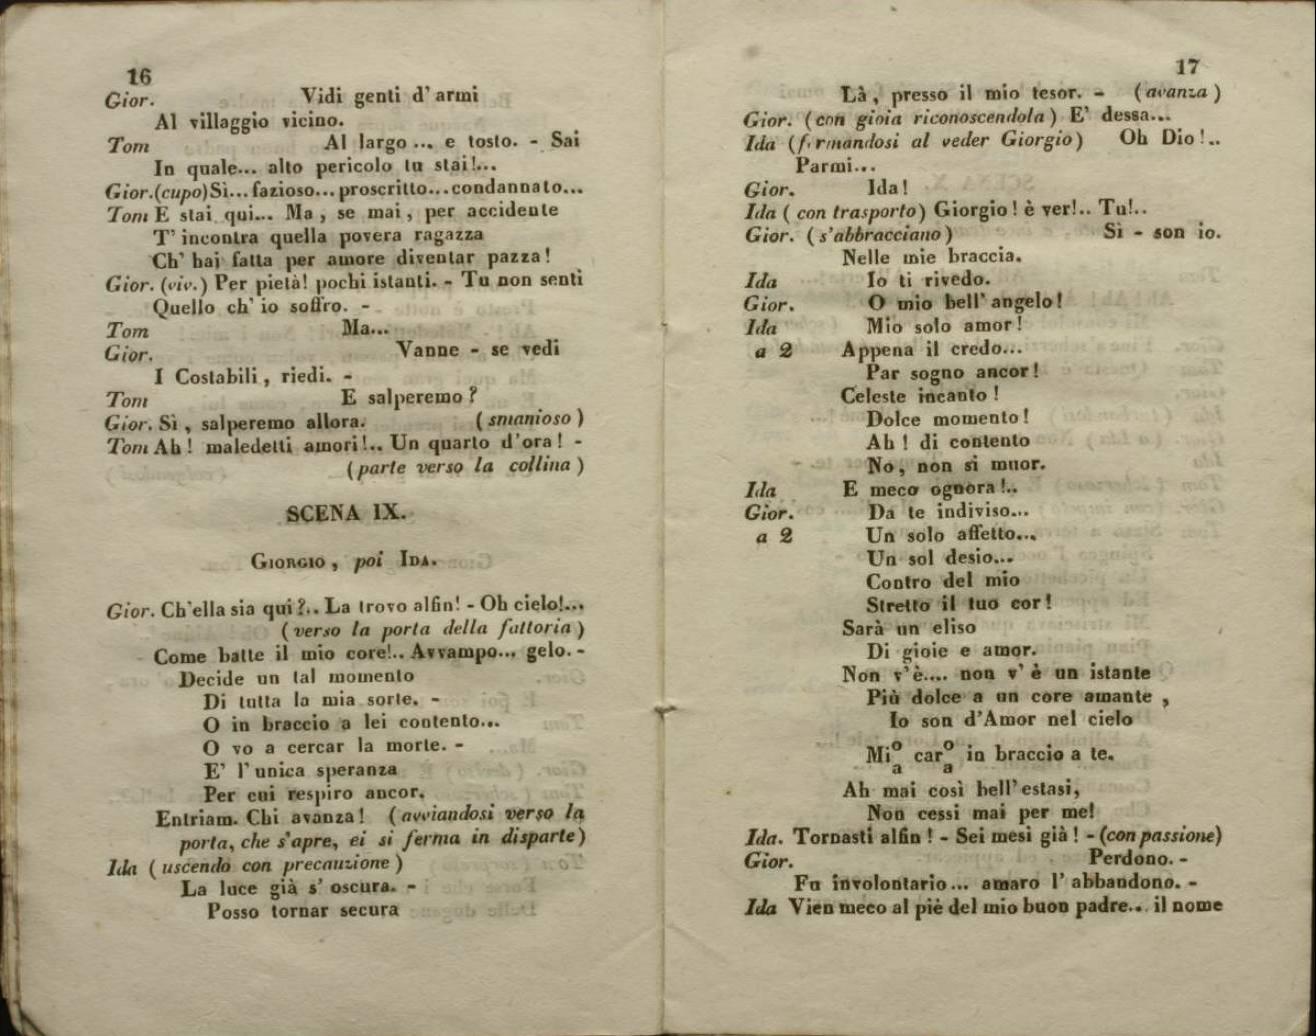 16
Gior. Vidi genti d' armi
Al villaggio vicino.
Tom Al largo ... e tosto. - Sai
In quale... alto pericolo tu stai!...
Gior.(cupo)Sì... fazioso... proscritto...condannato...
Tom E stai qui... Ma, se mai, per accidente
T' incontra quella povera ragazza
Ch' hai fatta per amore diventar pazza!
Gior. (viv.) Per pietà! pochi istanti. - Tu non senti
Quello ch' io soffro. -
Tom Ma...
Gior. Vanne - se vedi
I Costabili, riedi. -
Tom E salperemo?
Gior. Sì, salperemo allora. (smanioso)
Tom Ah! maledetti amori!.. Un quarto d'ora! -
(parte verso la collina)
SCENA IX.
GIORGIO, poi IDA.
Gior. Ch'ella sia qui?.. La trovo alfin! - Oh cielo!...
(verso la porta della fattoria)
Come batte il mio core!.. Avvampo... gelo. -
Decide un tal momento
Di tutta la mia sorte. -
O in braccio a lei contento...
O vo a cercar la morte. -
E' l' unica speranza
Per cui respiro ancor.
Entriam. Chi avanza! (avviandosi verso la
porta, che s'apre, ei si ferma in disparte)
Ida (uscendo con precauzione)
La luce già s' oscura. -
Posso tornar secura
17
Là, presso il mio tesor. - (avanza)
Gior. (con gioia riconoscendola) E' dessa...
Ida (fermandosi al veder Giorgio) Oh Dio!..
Parmi...
Gior. Ida!
Ida (con trasporto) Giorgio! è ver!.. Tu!..
Gior. (s'abbracciano) Sì - son io.
Nelle mie braccia.
Ida Io ti rivedo.
Gior. O mio bell' angelo!
Ida Mio solo amor!
a 2 Appena il credo...
Par sogno ancor!
Celeste incanto!
Dolce momento!
Ah! di contento
No, non si muor.
Ida E meco ognora!..
Gior. Da te indiviso...
a 2 Un solo affetto...
Un sol desio...
Contro del mio
Stretto il tuo cor!
Sarà un eliso
Di gioie e amor.
Non v'è.... non v' è un istante
Più dolce a un core amante,
Io son d'Amor nel cielo
Mi^o_a car^o_a in braccio a te.
Ah mai così bell' estasi,
Non cessi mai per me!
Ida. Tornasti alfin! - Sei mesi già! - (con passione)
Gior. Perdono. -
Fu involontario... amaro l' abbandono. -
Ida Vien meco al piè del mio buon padre... il nome